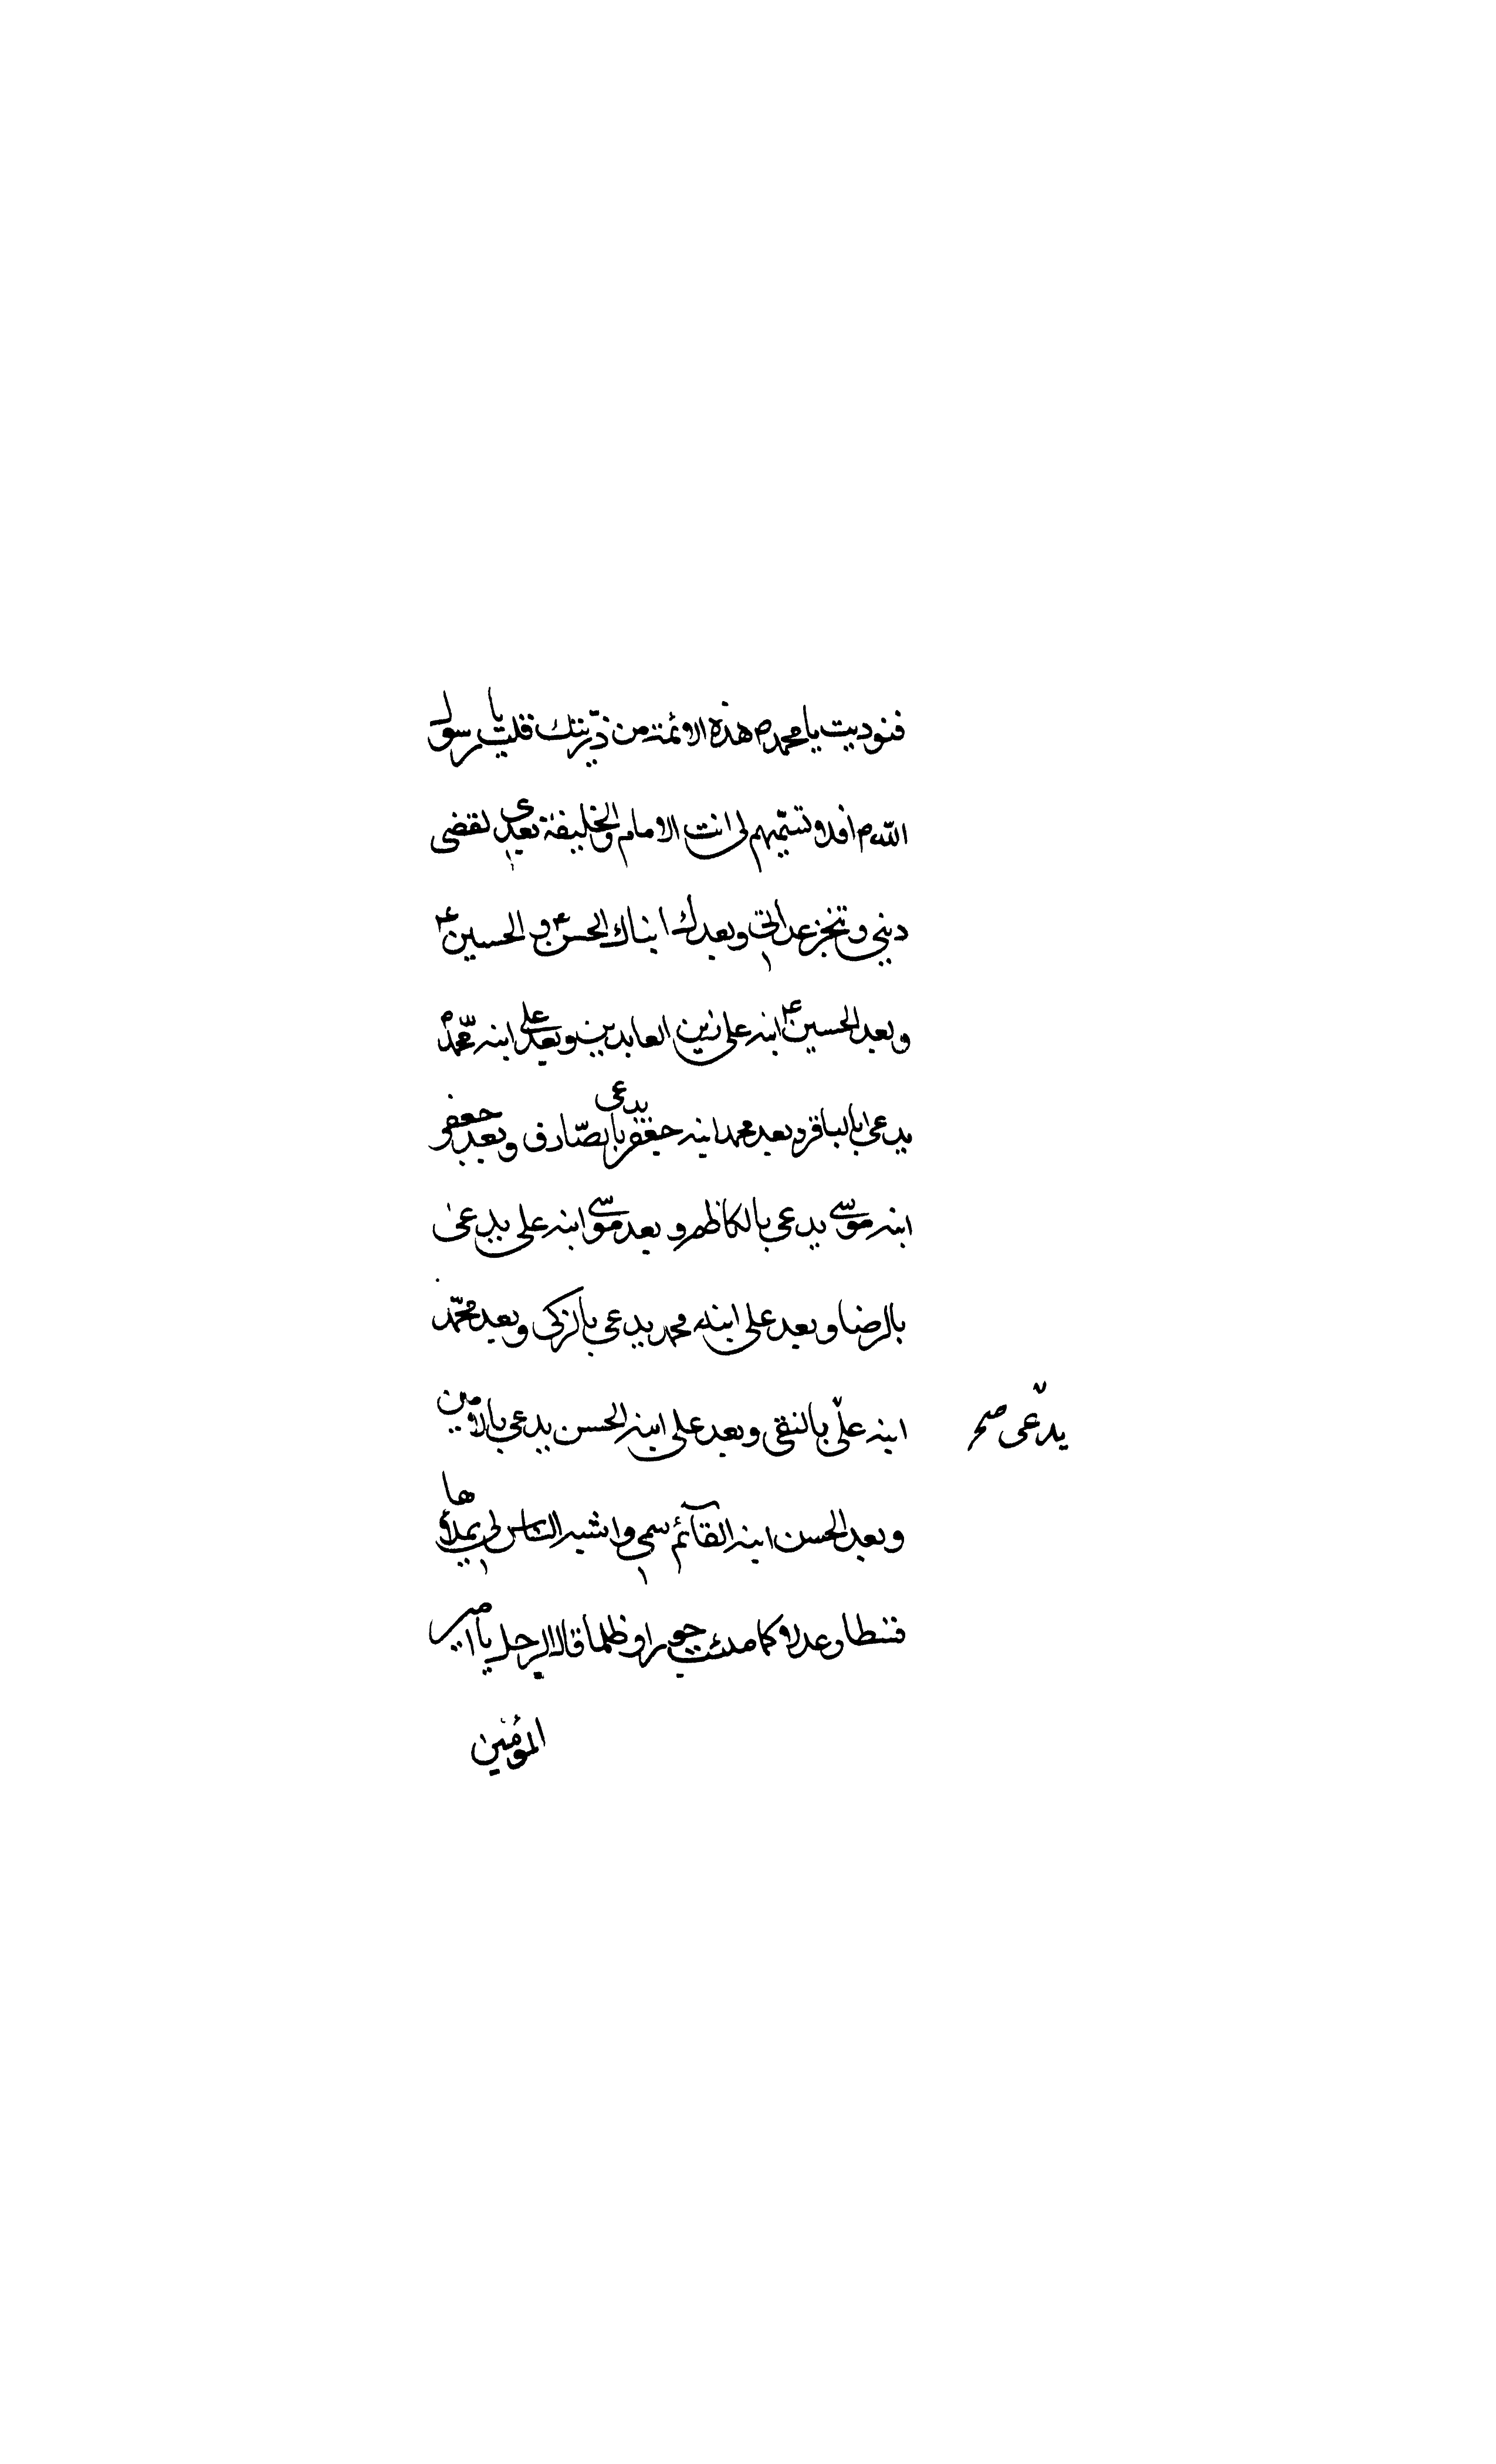 فنوديت يا محمد ص هذه الائمة من ذرّيتك قلت يا رسول
الله ص افلا تسمّيهم لى انت الامام والخليفة بعدى تقضى
دينى وتنجز عداتى وبعدك ابناك الحسن ع و الحسين ع
وبعد الحسين ع ابنه على زين العابدين وبعد على ابنه محمّد
يدعى بالباقر وبعد محمد ابنه جعفر يدعى بالصّادق وبعد جعفر
ابنه موسى يدعى بالكاظم وبعد موسى ابنه على يدعى
بالرضا وبعد على ابنه محمد يدعى بالزكى وبعد محمّد
ابنه علىّ بالنقى وبعد على ابنه الحسن يدعى بالامين
يدّعى صح
وبعد الحسن ابنه القآئم سمى واشبه الناس لى يملاها
قسطا وعدلا كما ملئت جورا وظلما قال الرجل يا امير
المؤمنين